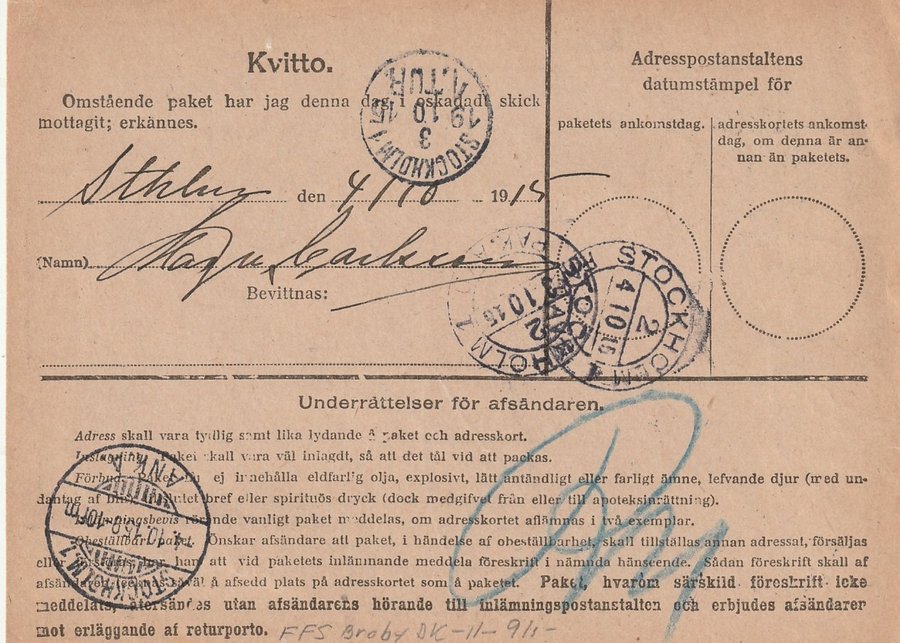 Kvitto.
Omstående paket har jag denna dag i oskadadt skick
mottagit; erkännes.
Sthlm den 4/10 1915
(Namn) Carlsson
Bevittnas:
Adresspostanstaltens
datumstämpel för
paketets ankomstdag.
adresskortets ankomst-
dag, om denna är an-
nan än paketets.
STOCKHOLM 1
3
19 10 15
A.TUR
STOCKHOLM 1
2
3 10 15
PAK.
STOCKHOLM 1
2
4 10 15
Underrättelser för afsändaren.
Adress skall vara tydlig samt lika lydande å paket och adresskort.
Inslagning. Paket skall vara väl inlagdt, så att det tål vid att packas.
Förbud. Paket får ej innehålla eldfarlig olja, explosivt, lätt antändligt eller farligt ämne, lefvande djur (med un-
dantag af bin), slutet bref eller spirituös dryck (dock medgifvet från eller till apoteksinrättning).
Inlämningsbevis rörande vanligt paket meddelas, om adresskortet aflämnas i två exemplar.
Obeställbart paket. Önskar afsändare att paket, i händelse af obeställbarhet, skall tillställas annan adressat, försäljas
eller förstöras, bör han att vid paketets inlämnande meddela föreskrift i nämnda hänseende. Sådan föreskrift skall af
afsändaren tecknas såväl å afsedd plats på adresskortet som å paketet. Paket, hvarom särskild föreskrift icke
meddelats, återsändes utan afsändarens hörande till inlämningspostanstalten och erbjudes afsändaren
mot erläggande af returporto.
STOCKHOLM 1
4.10.15 8-10FM
ANK
FFS Broby DK-11-9/1-